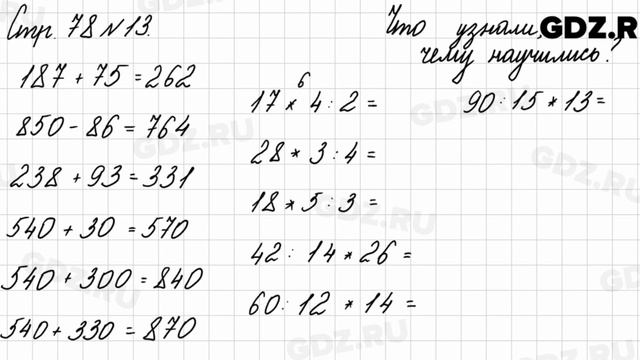 Стр. 78 № 13.
Что узнали,
чему научились?
GDZ.RU
187 + 75 = 262
850 - 86 = 764
238 + 93 = 331
540 + 30 = 570
540 + 300 = 840
540 + 330 = 870
6
17 * 4 : 2 =
28 * 3 : 4 =
18 * 5 : 3 =
42 : 14 * 26 =
60 : 12 * 14 =
90 : 15 * 13 =